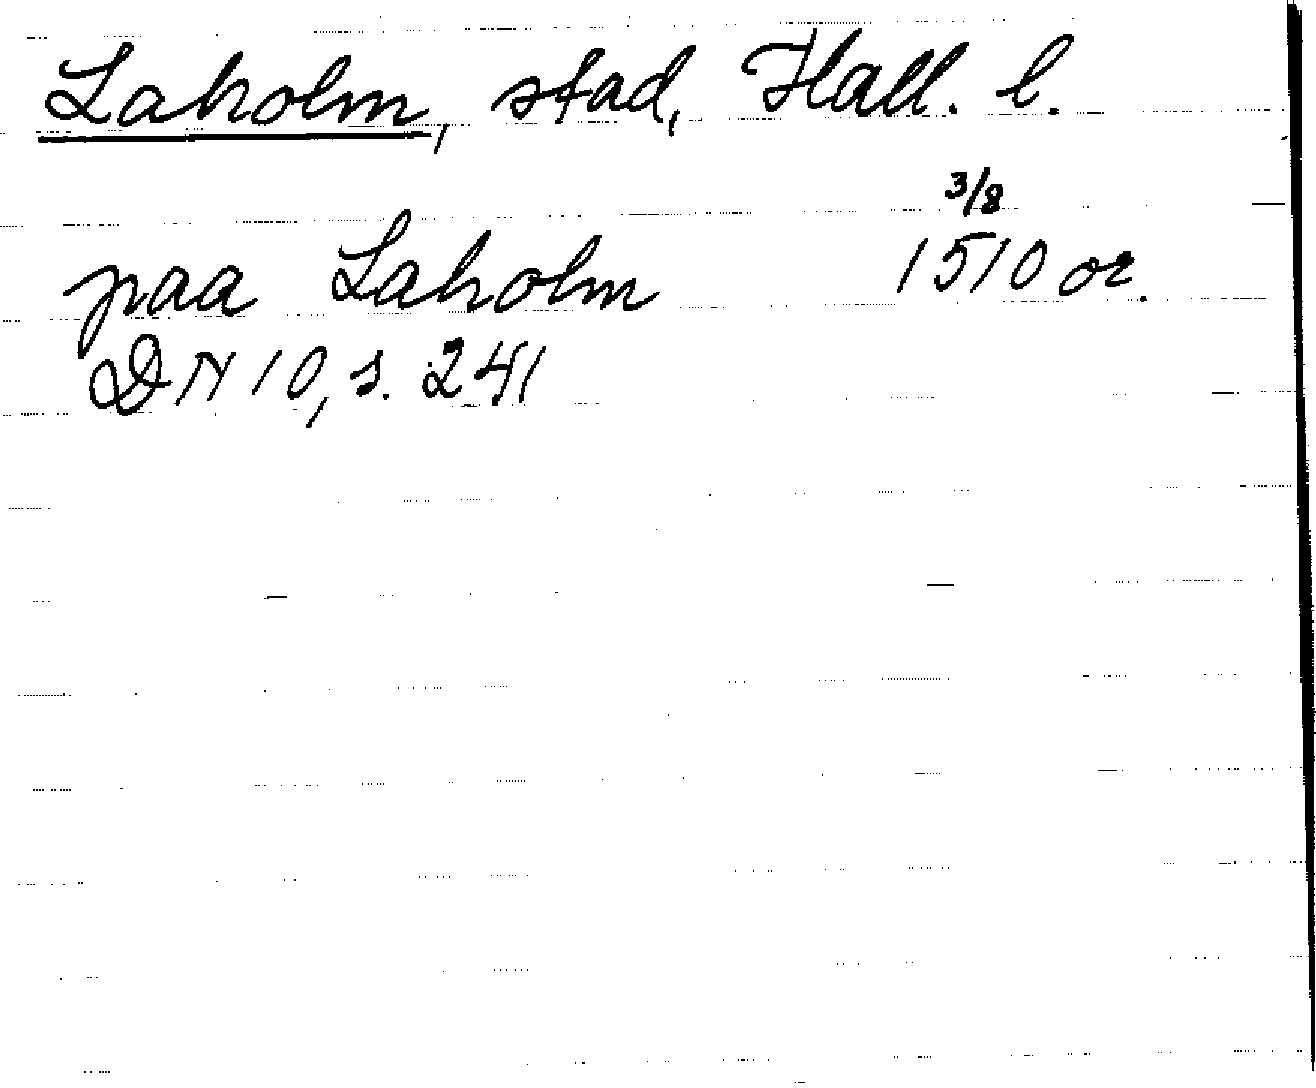 Laholm, stad, Hall. l.
3/8
paa Laholm 1510 or.
DN 10, s. 241